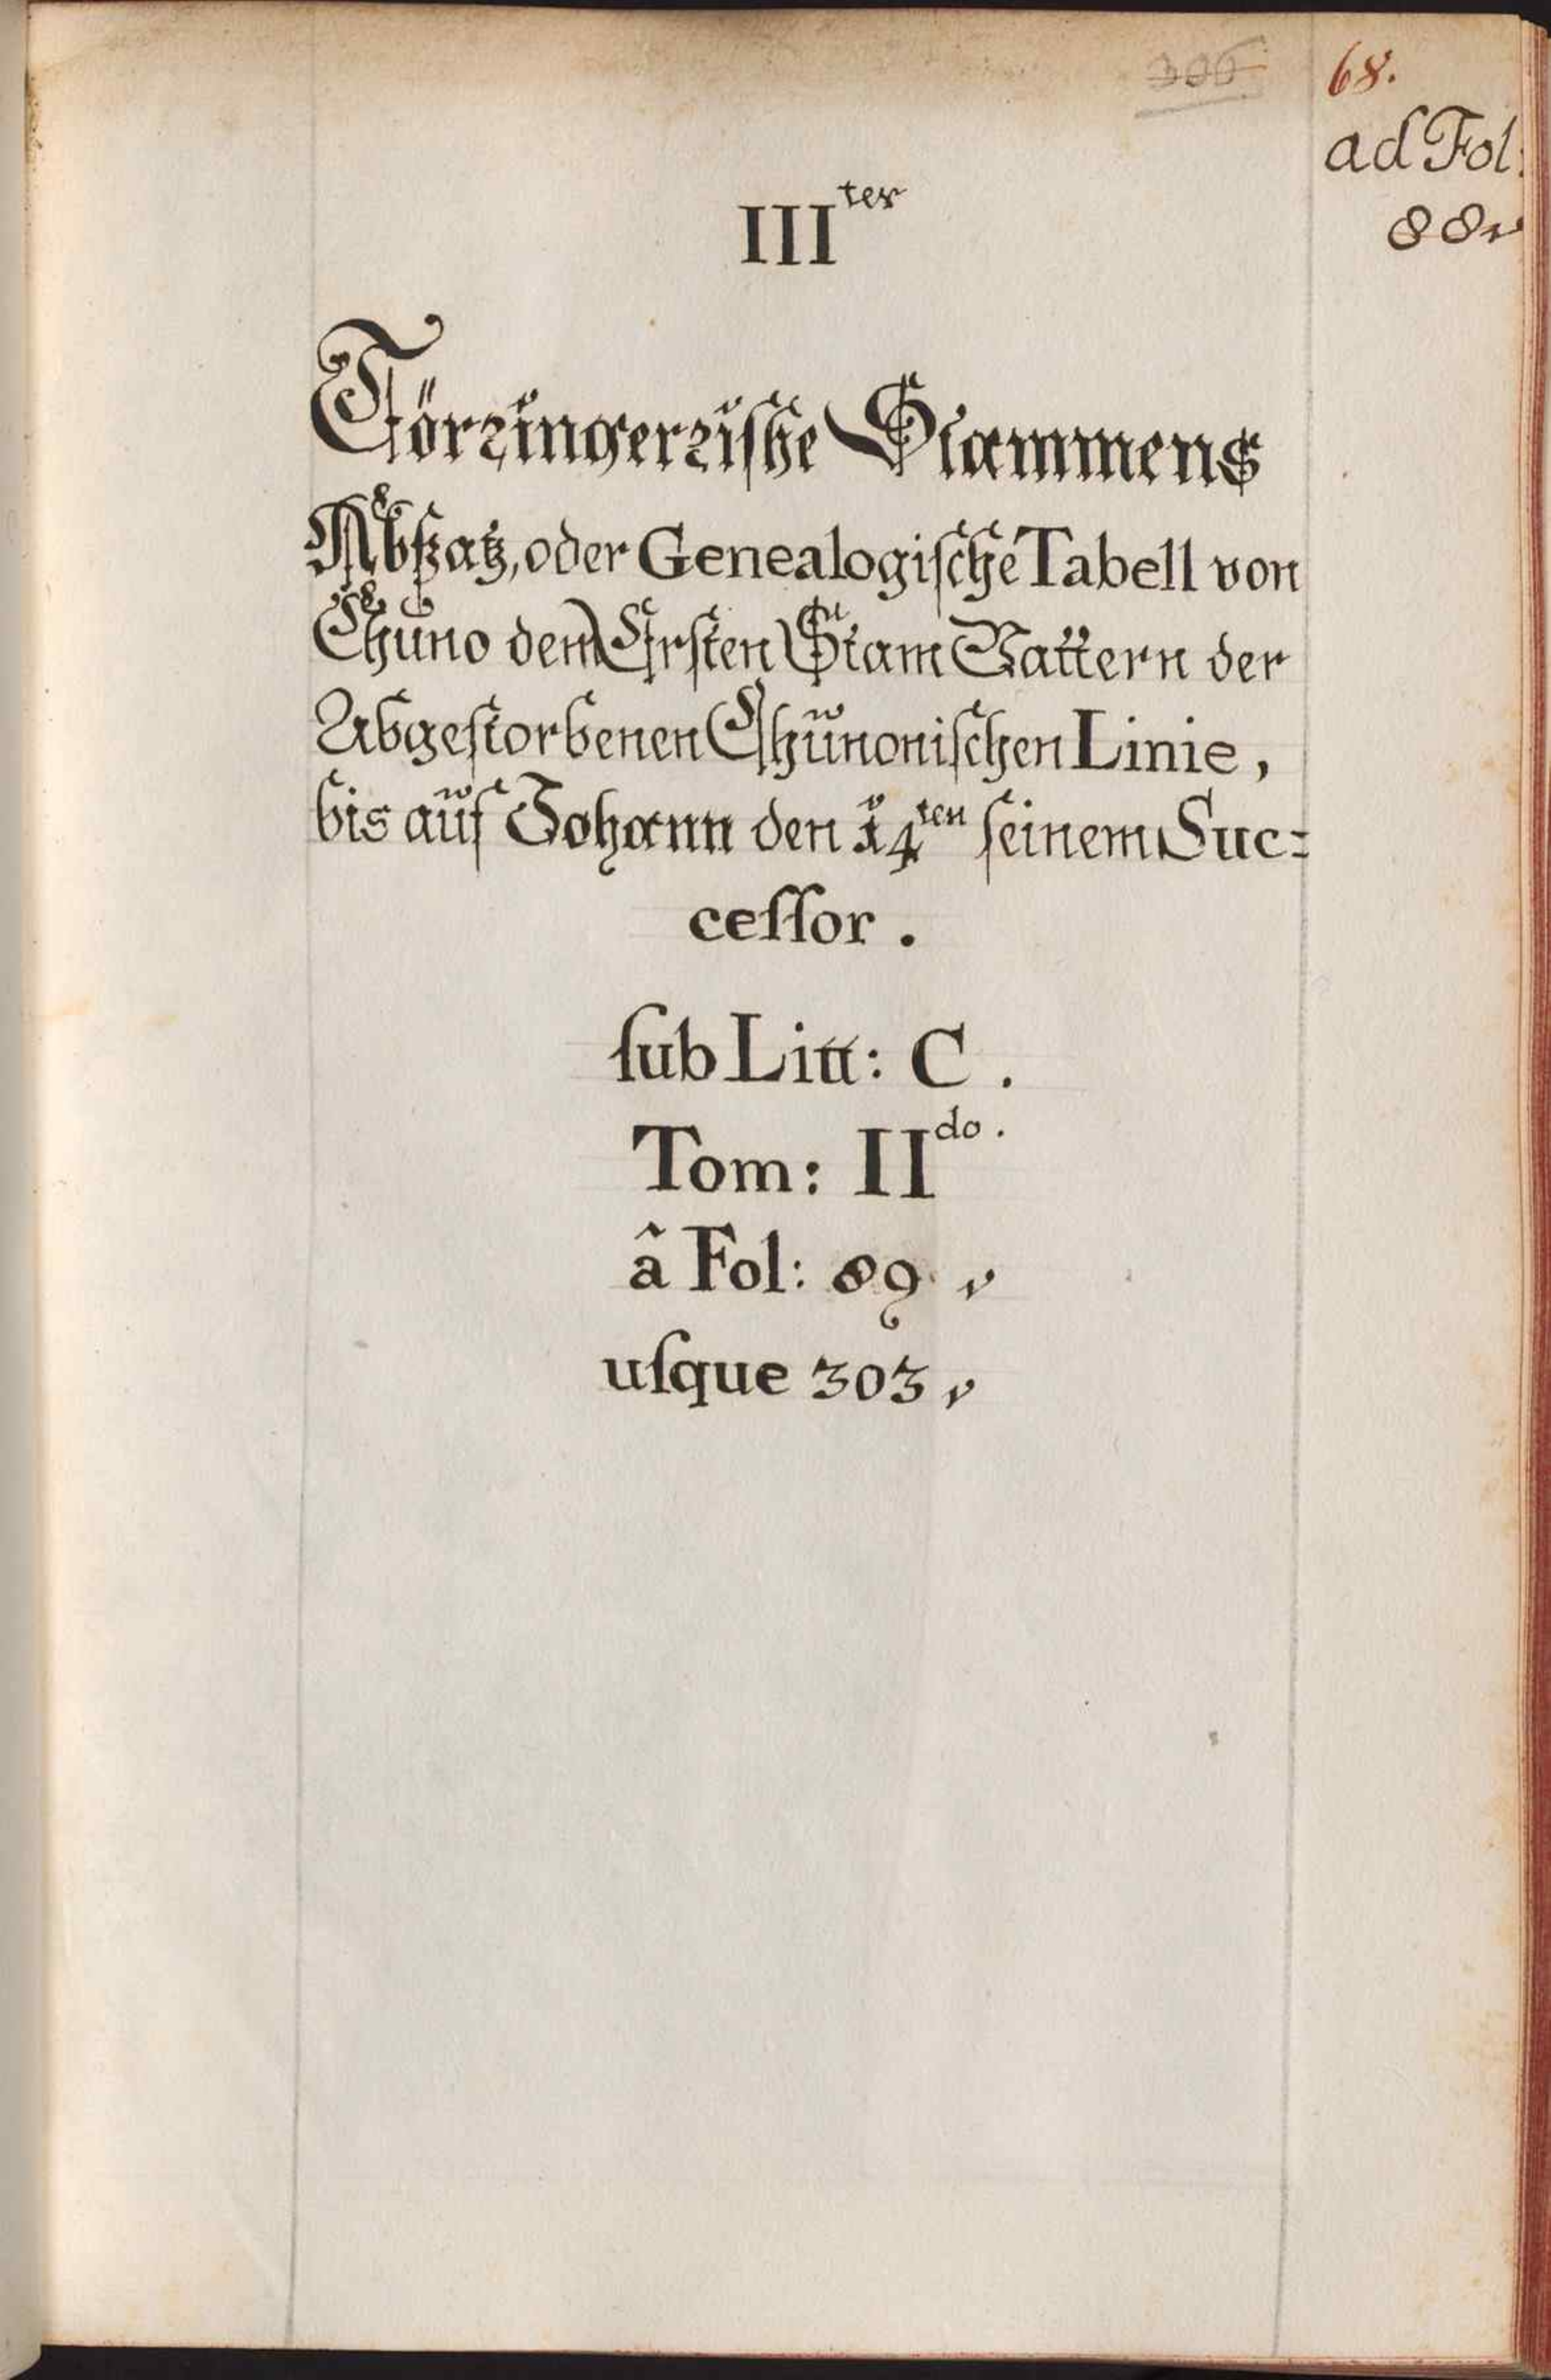 306
68.
ad Fol:
88
III^ter
Törringerriſche Stammens
Abſzatz, oder Genealogiſche Tabell von
Chuno dem Erſten Stam Vattern der
Abgeſtorbenen Chunoniſchen Linie,
bis auf Johann den 14^ten ſeinem Suc=
ceſſor .
ſub Litt: C .
Tom: II^do.
â Fol: 89
uſque 303